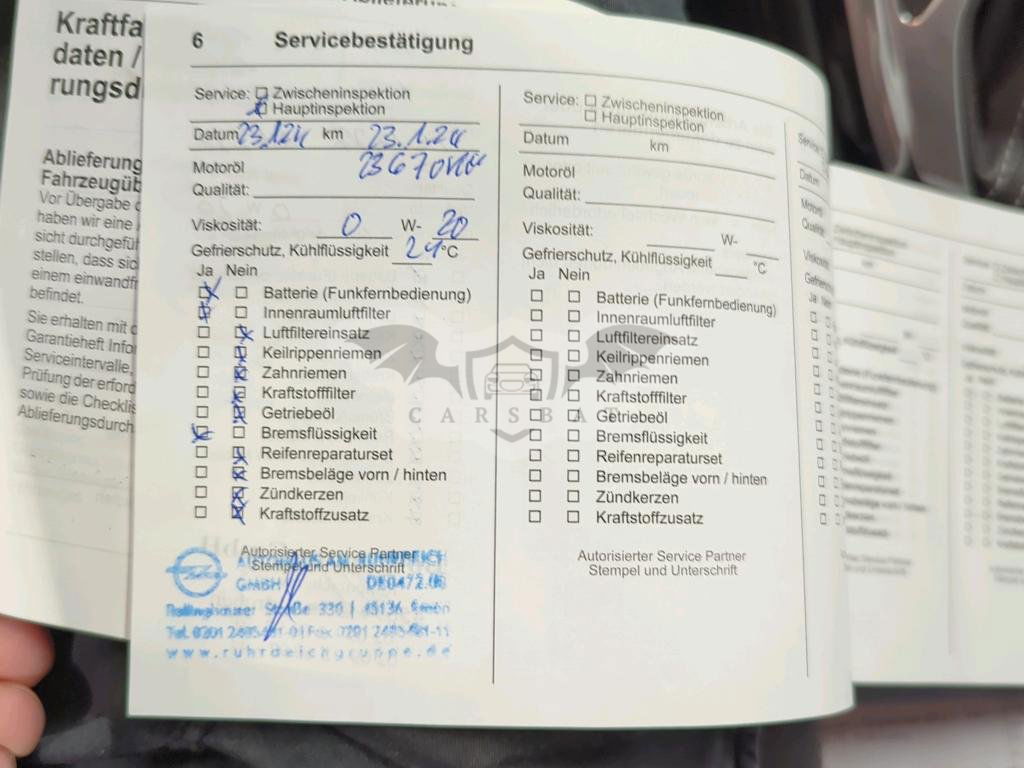 Kraftfa
daten /
rungsd
Ablieferung
Fahrzeugüb
Vor Übergabe
haben wir eine
sicht durchgefüh
stellen, dass sic
einem einwandfr
befindet.
Sie erhalten mit d
Garantieheft Infor
Serviceintervalle,
Prüfung der erford
sowie die Checklis
Ablieferungsdurch
6 Servicebestätigung
Service: Zwischeninspektion
Hauptinspektion
Datum 23.1.24 km 23.1.24
Motoröl 23670 km
Qualität:
Viskosität: 0 W- 20
Gefrierschutz, Kühlflüssigkeit °C
Ja Nein
Batterie (Funkfernbedienung)
Innenraumluftfilter
Luftfiltereinsatz
Keilrippenriemen
Zahnriemen
Kraftstofffilter
Getriebeöl
Bremsflüssigkeit
Reifenreparaturset
Bremsbeläge vorn / hinten
Zündkerzen
Kraftstoffzusatz
Autorisierter Service Partner
Stempel und Unterschrift
GMBH DE0472.00
Straße 330 | 45136 Essen
www.ruhrdeichgruppe.de
Service: Zwischeninspektion
Hauptinspektion
Datum km
Motoröl
Qualität:
Viskosität: W-
Gefrierschutz, Kühlflüssigkeit °C
Ja Nein
Batterie (Funkfernbedienung)
Innenraumluftfilter
Luftfiltereinsatz
Keilrippenriemen
Zahnriemen
Kraftstofffilter
Getriebeöl
Bremsflüssigkeit
Reifenreparaturset
Bremsbeläge vorn / hinten
Zündkerzen
Kraftstoffzusatz
Autorisierter Service Partner
Stempel und Unterschrift
CARSBA